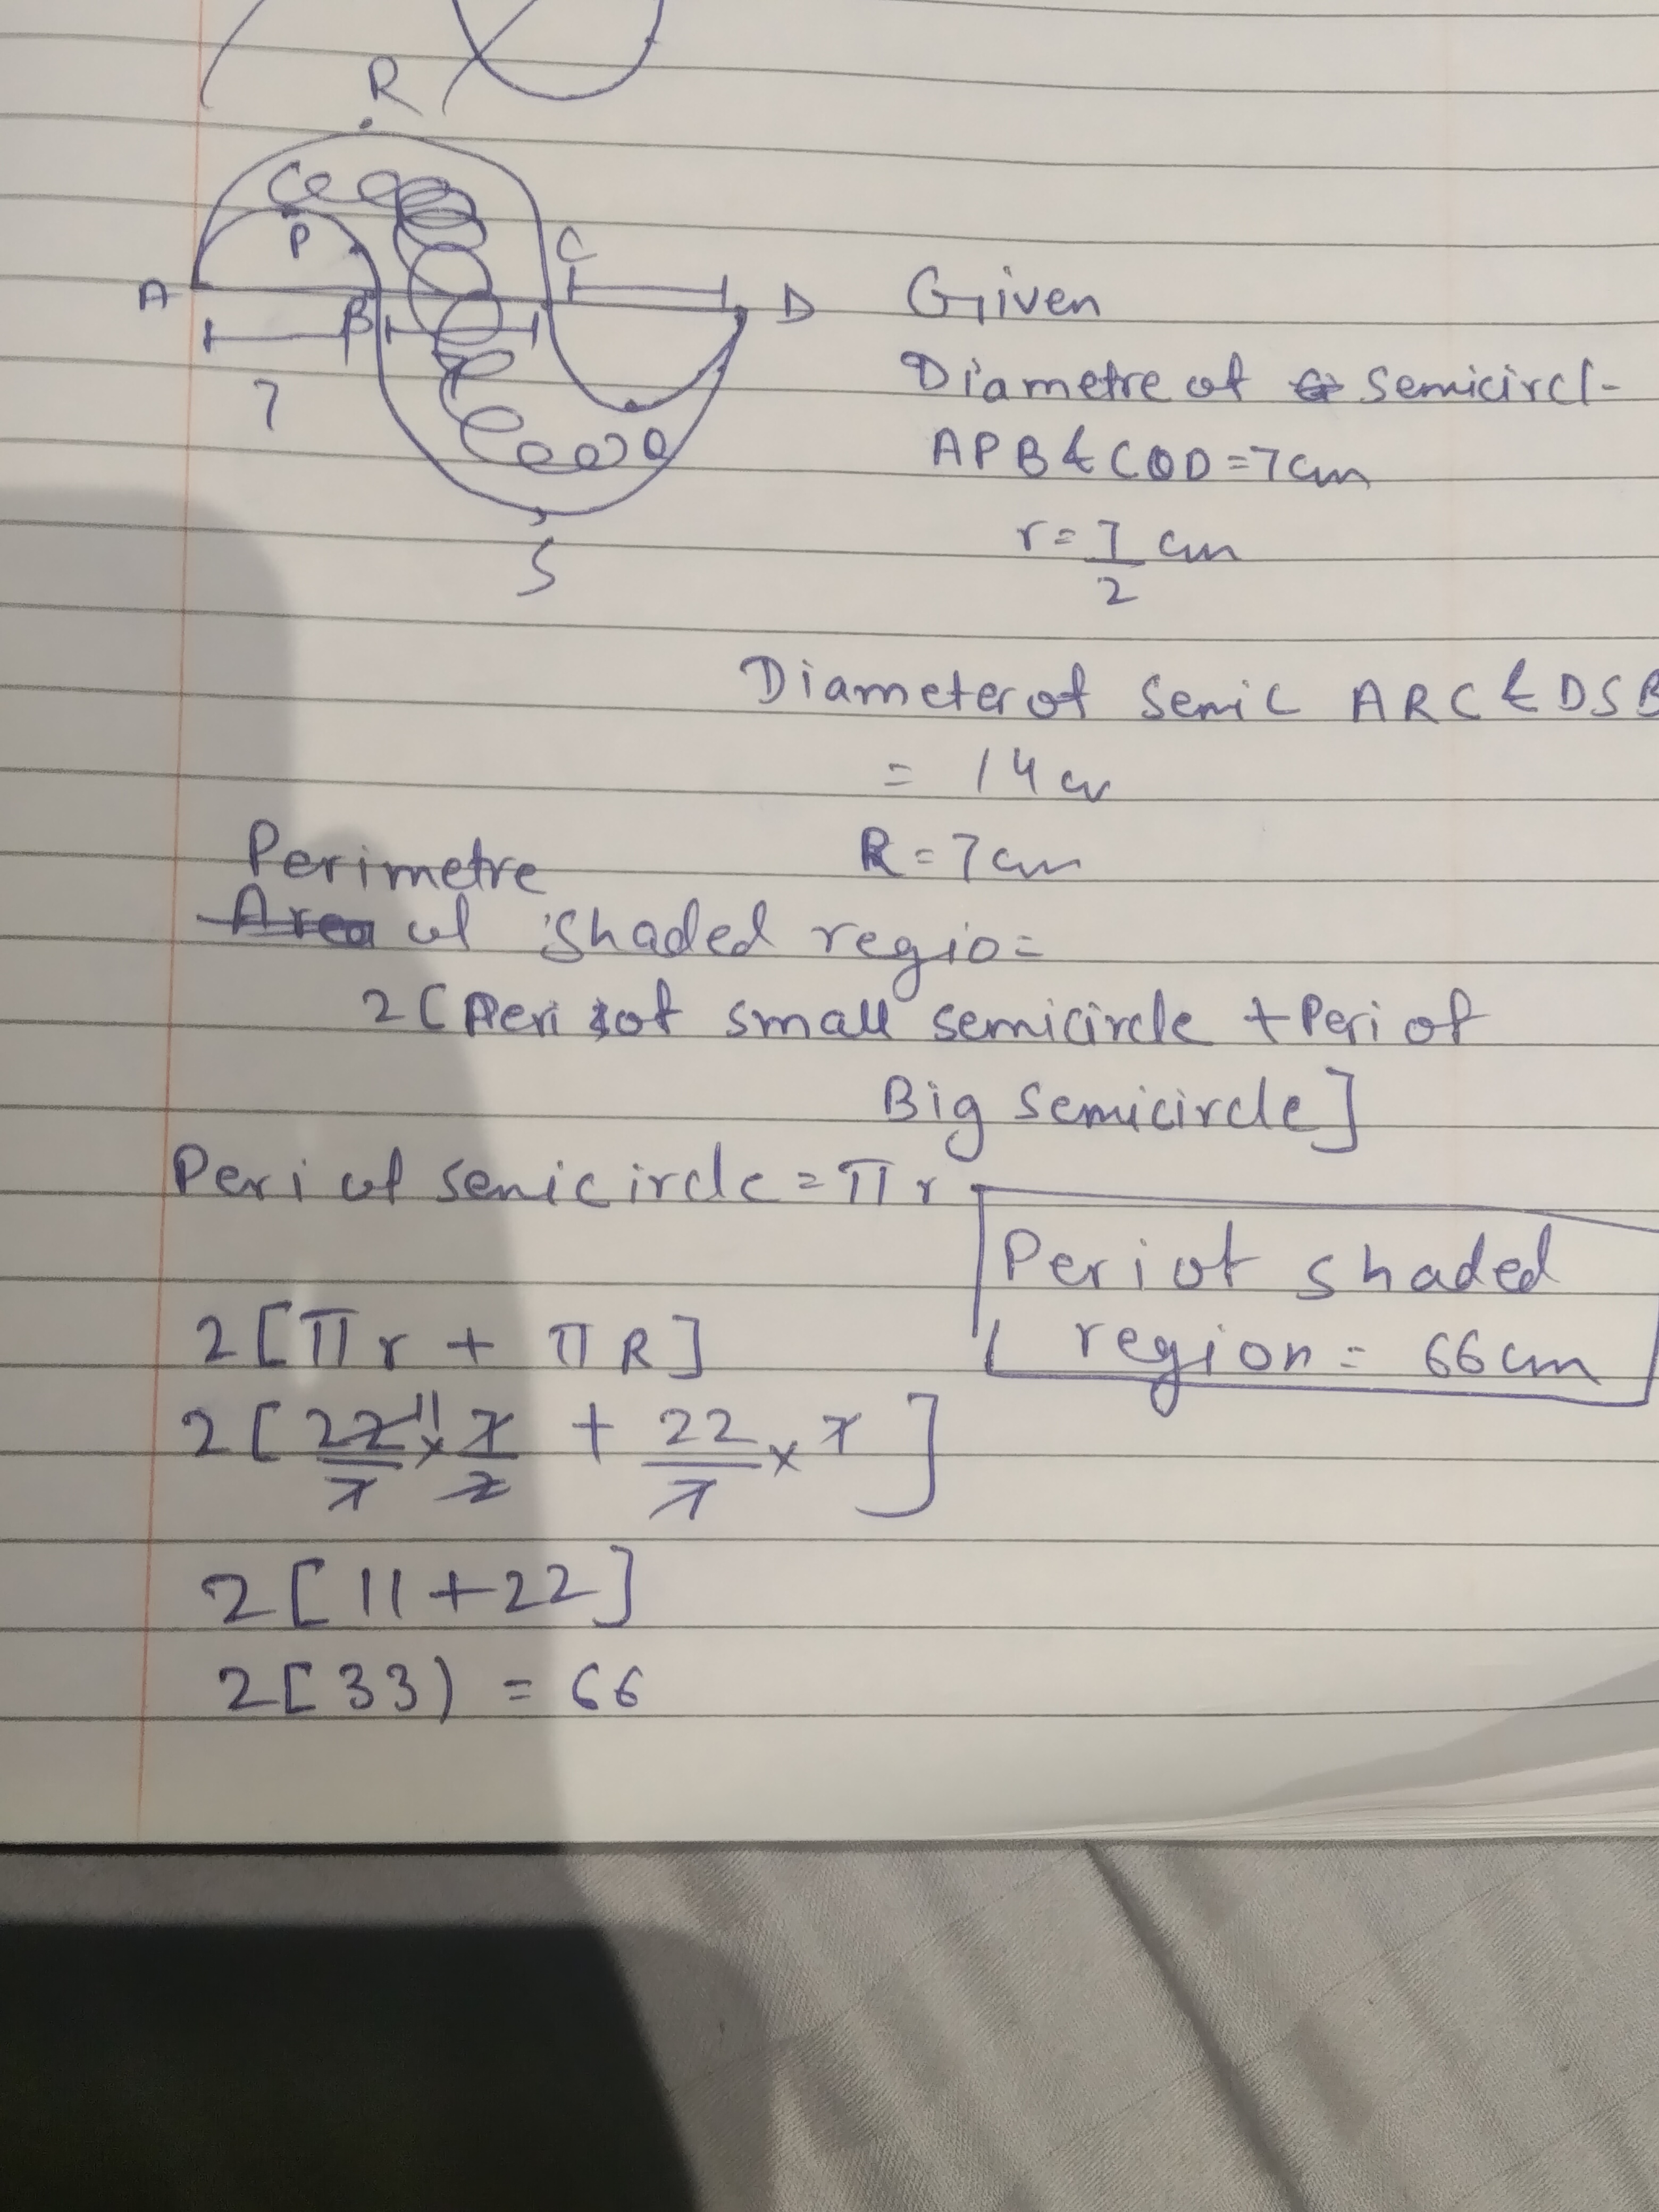 R
P
A
B
C
D
7
Q
S
Given
Diametre of semicircl-
APB & CQD = 7cm
r = 7/2 cm
Diameter of Semic ARC & DSB
= 14 cm
R = 7cm
Perimetre
Area of shaded regio=
2[Peri of small semicircle + Peri of
Big semicircle]
Peri of semicircle = πr
Peri of shaded
region = 66cm
2[πr + πR]
2[22/7 11 × 7/2 + 22/7 × 7]
2[11+22]
2[33) = 66